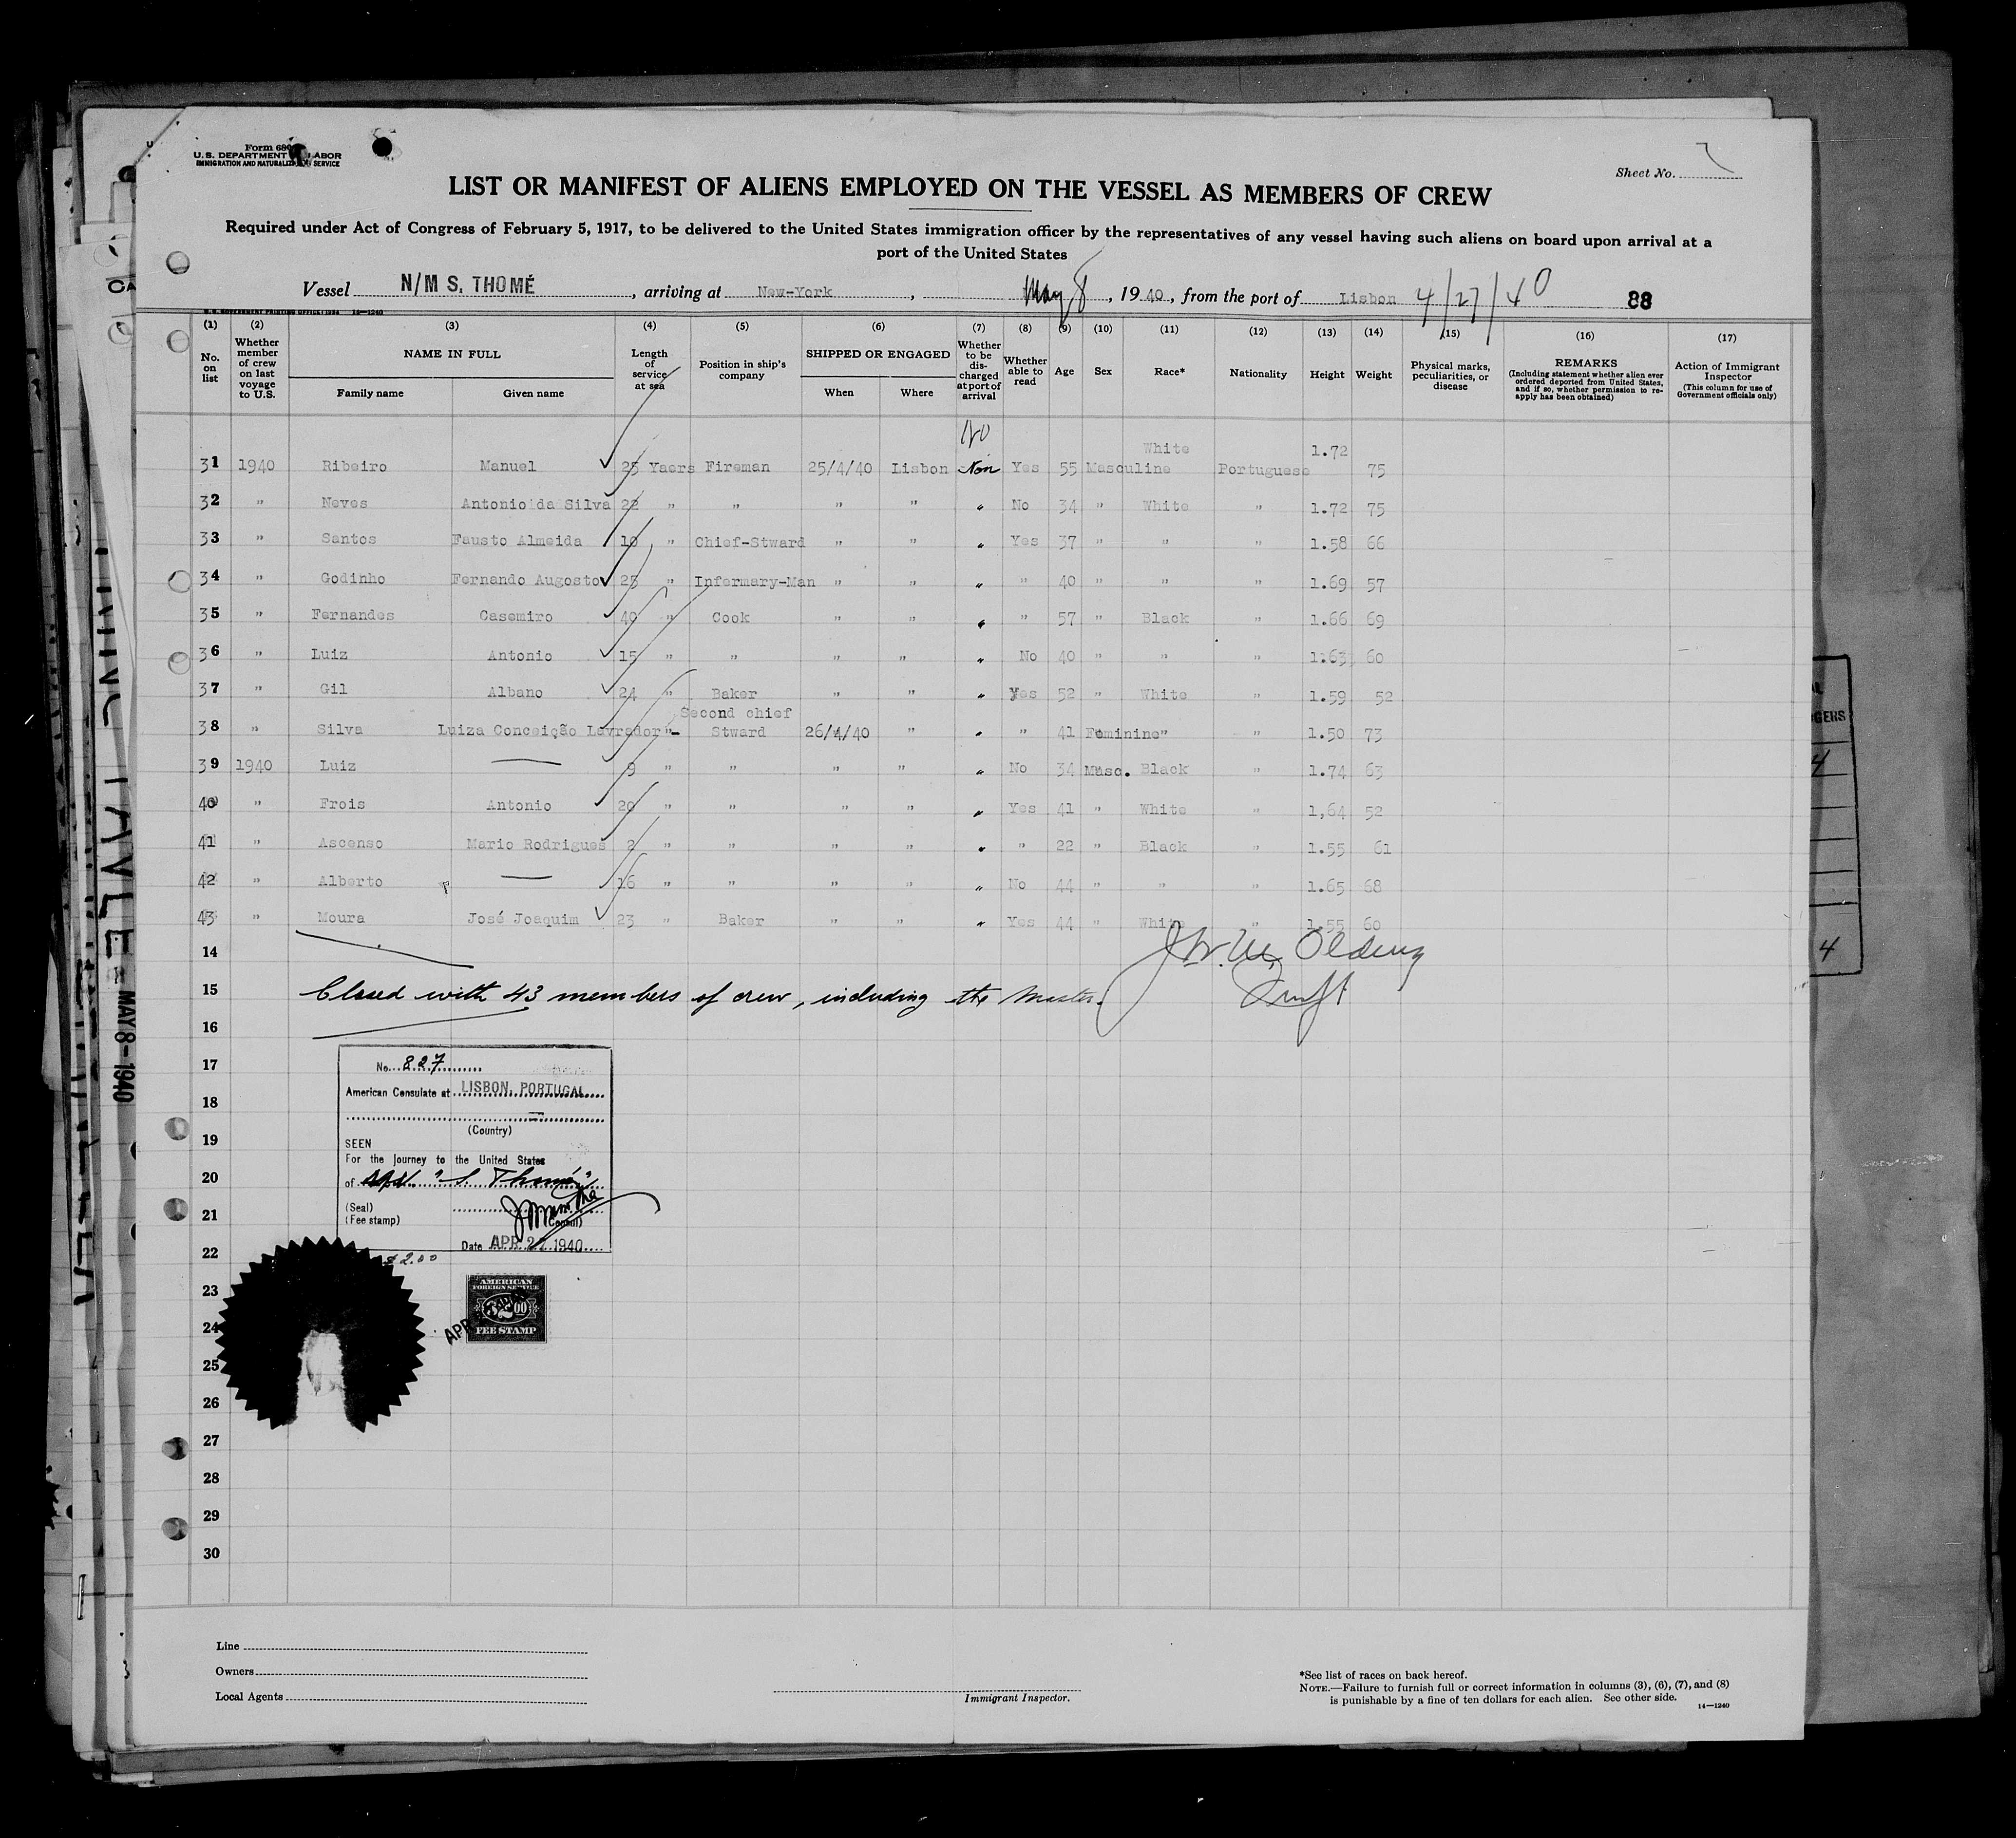 Form 680
U. S. DEPARTMENT OF LABOR
IMMIGRATION AND NATURALIZATION SERVICE
Sheet No.
LIST OR MANIFEST OF ALIENS EMPLOYED ON THE VESSEL AS MEMBERS OF CREW
Required under Act of Congress of February 5, 1917, to be delivered to the United States immigration officer by the representatives of any vessel having such aliens on board upon arrival at a
port of the United States
Vessel N/M S. THOMÉ, arriving at New-York, May 8, 1940, from the port of Lisbon 4/27/40 88
(1) (2) (3) (4) (5) (6) (7) (8) (9) (10) (11) (12) (13) (14) (15) (16) (17)
No. on list
Whether member of crew on last voyage to U.S.
NAME IN FULL
Family name Given name
Length of service at sea
Position in ship's company
SHIPPED OR ENGAGED
When Where
Whether to be discharged at port of arrival
Whether able to read
Age
Sex
Race*
Nationality
Height
Weight
Physical marks, peculiarities, or disease
REMARKS
(Including statement whether alien ever ordered deported from United States, and if so, whether permission to reapply has been obtained)
Action of Immigrant Inspector
(This column for use of Government officials only)
No
31 1940 Ribeiro Manuel 25 Yaers Fireman 25/4/40 Lisbon Non Yes 55 Masculine White Portuguese 1.72 75
32 " Neves Antonio da Silva 22 " " " " " No 34 " White " 1.72 75
33 " Santos Fausto Almeida 10 " Chief-Stward " " " Yes 37 " " " 1.58 66
34 " Godinho Fernando Augosto 25 " Infermary-Man " " " " 40 " " " 1.69 57
35 " Fernandes Casemiro 40 " Cook " " " " 57 " Black " 1.66 69
36 " Luiz Antonio 15 " " " " " No 40 " " " 1.63 60
37 " Gil Albano 24 " Baker " " " Yes 52 " White " 1.59 52
38 " Silva Luiza Conceição Lavrador "- Second chief Stward 26/4/40 " " " 41 Feminine " " 1.50 73
39 1940 Luiz — 9 " " " " " No 34 Masc. Black " 1.74 63
40 " Frois Antonio 20 " " " " " Yes 41 " White " 1,64 52
41 " Ascenso Mario Rodrigues 2 " " " " " " 22 " Black " 1.55 61
42 " Alberto — 16 " " " " " No 44 " " " 1.65 68
43 " Moura José Joaquim 23 " Baker " " " Yes 44 " White " 1.55 60
14
15 Closed with 43 members of crew, including the Master.
16
17
18
19
20
21
22
23
24
25
26
27
28
29
30
No. 827
American Consulate at LISBON, PORTUGAL
(Country)
SEEN
For the Journey to the United States
of "S. Thomé"
(Seal)
(Fee stamp)
(Consul)
Date APR 27 1940
$2.00
AMERICAN
FOREIGN SERVICE
FEE STAMP
APR
Line
Owners
Local Agents
Immigrant Inspector.
*See list of races on back hereof.
NOTE.—Failure to furnish full or correct information in columns (3), (6), (7), and (8)
is punishable by a fine of ten dollars for each alien. See other side.
14—1240
MAY 8 - 1940